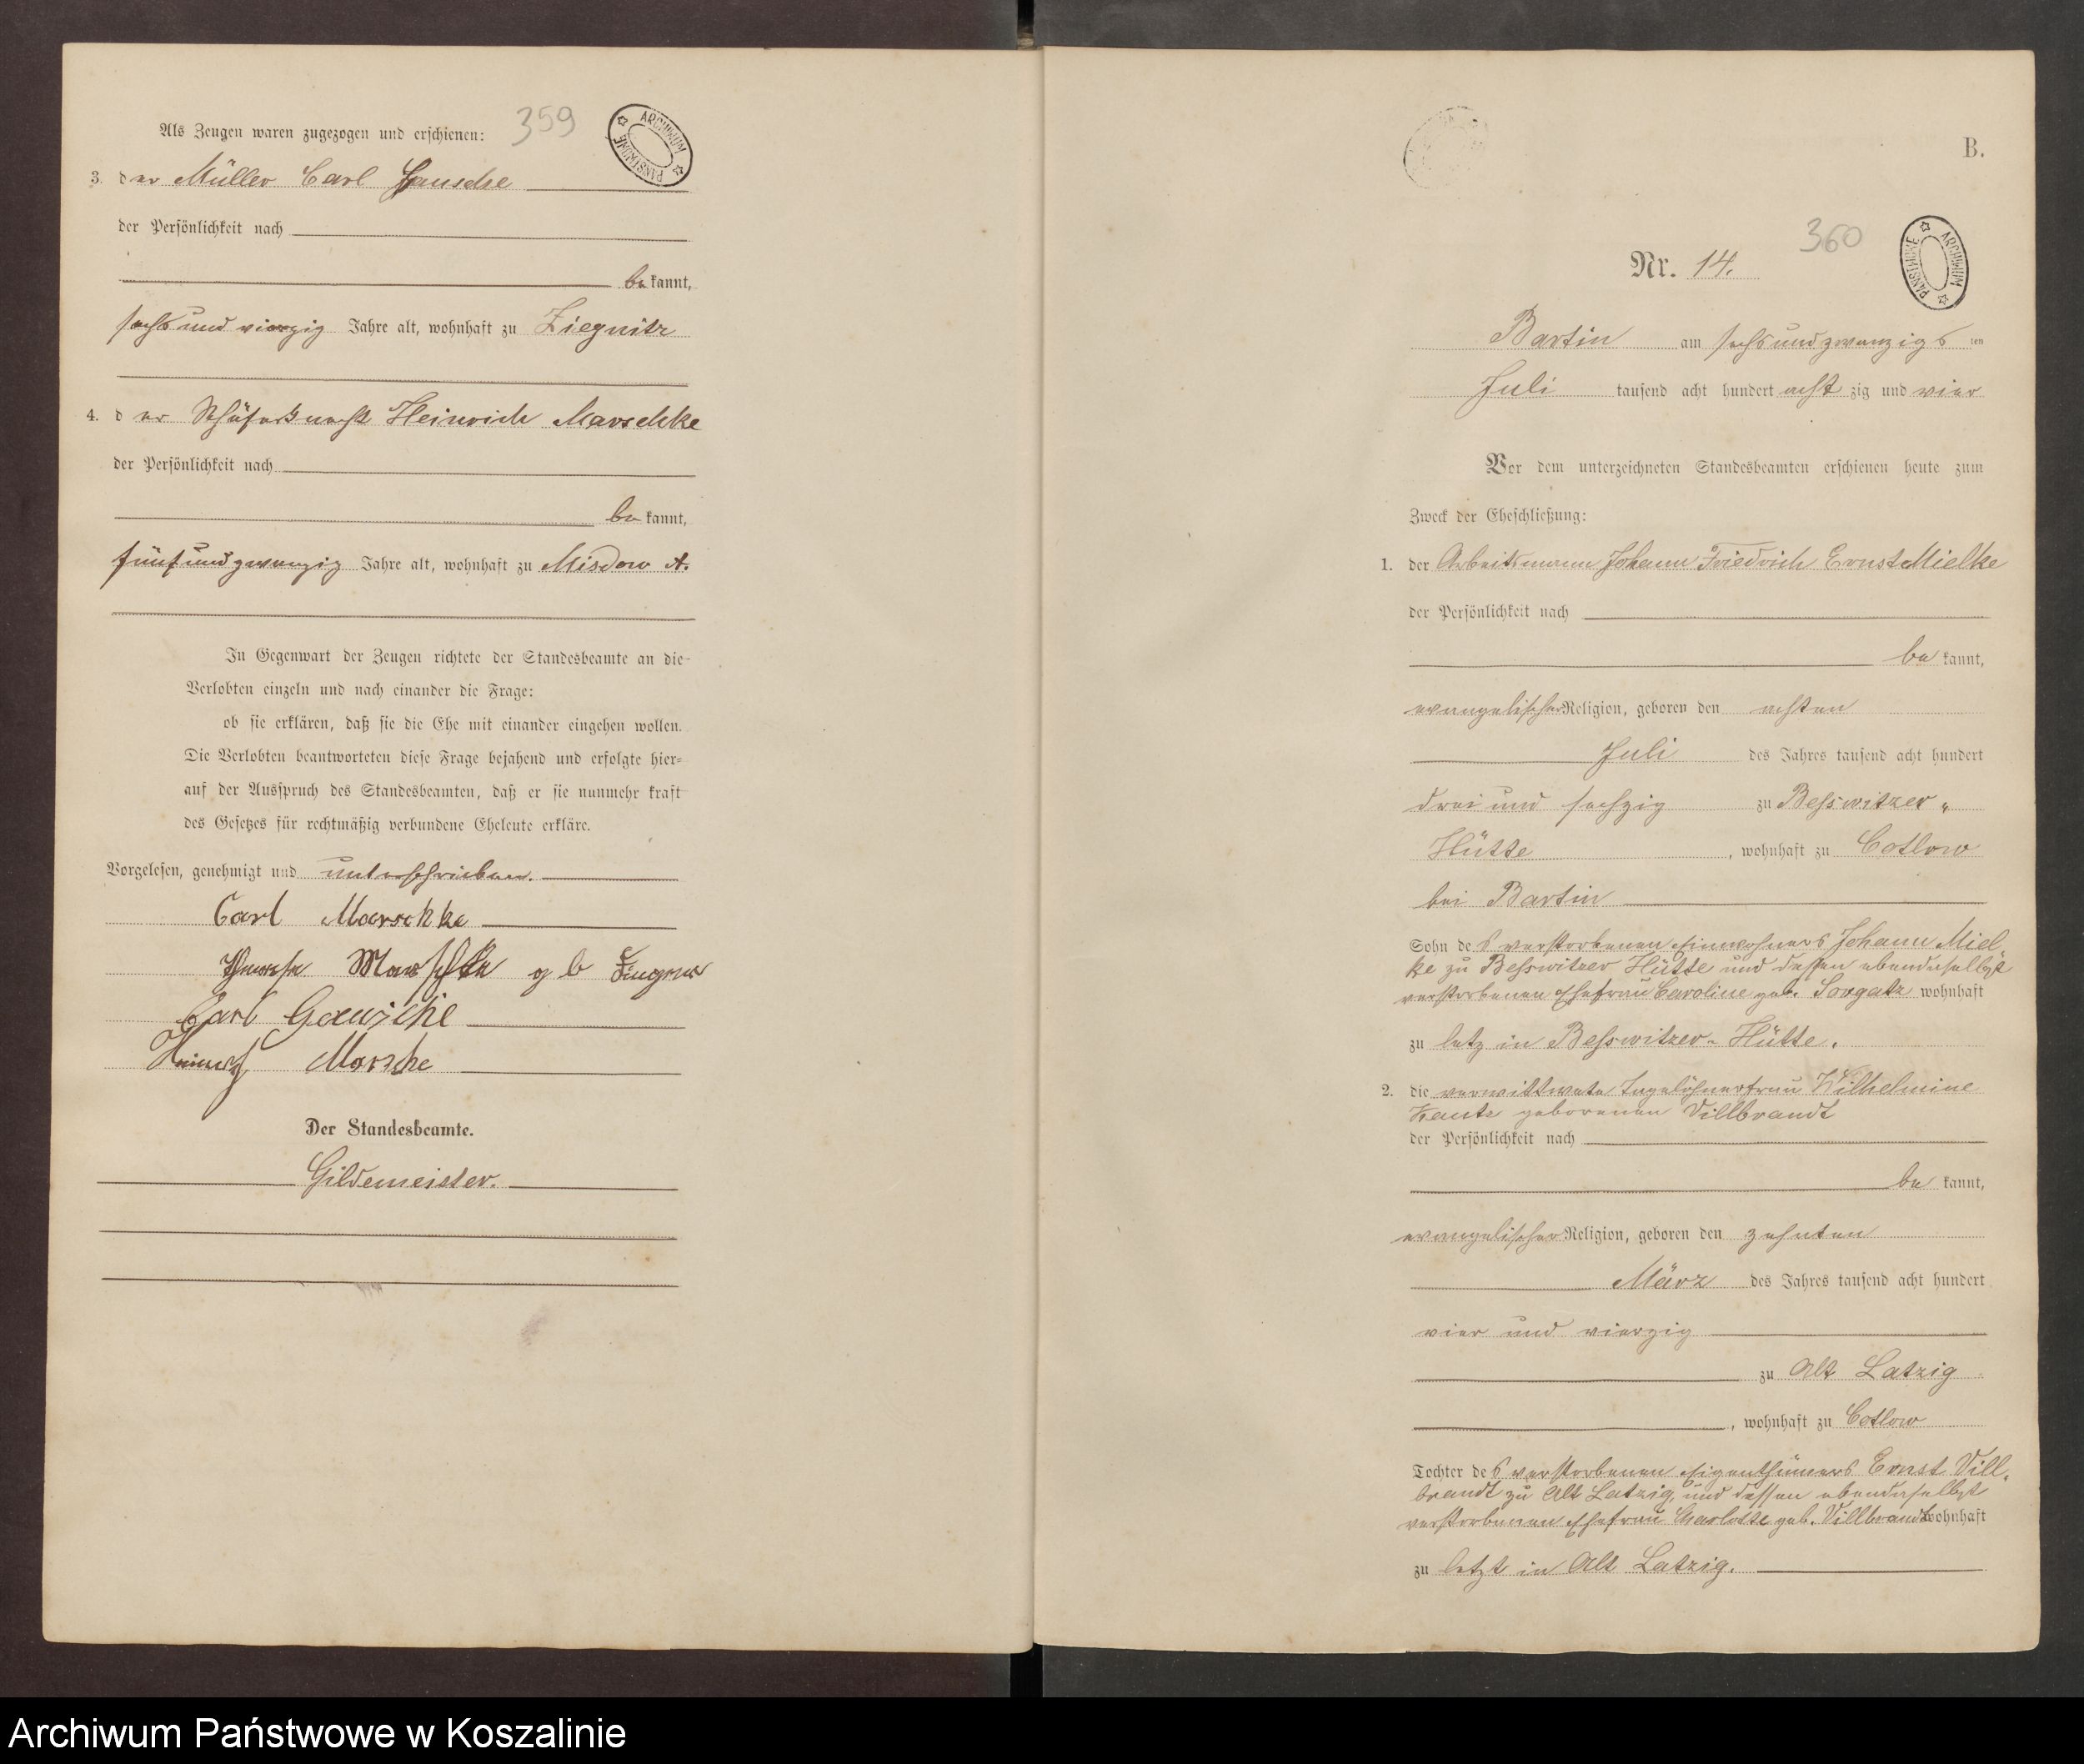 359
ARCHIWUM PAŃSTWOWE
Als Zeugen waren zugezogen und erschienen:
3. der Müller Carl
der Persönlichkeit nach
be kannt,
sechs und vierzig Jahre alt, wohnhaft zu Ziegnitz
4. der Schäferknecht Heinrich Marschke
der Persönlichkeit nach
be kannt,
fünfundzwanzig Jahre alt, wohnhaft zu Misdow A.
In Gegenwart der Zeugen richtete der Standesbeamte an die-
Verlobten einzeln und nach einander die Frage:
ob sie erklären, daß sie die Ehe mit einander eingehen wollen.
Die Verlobten beantworteten diese Frage bejahend und erfolgte hier-
auf der Ausspruch des Standesbeamten, daß er sie nunmehr kraft
des Gesetzes für rechtmäßig verbundene Eheleute erkläre.
Vorgelesen, genehmigt und unterschrieben.
Carl Marschke
Marschke g b
Carl Gauschke
Heinrich Marschke
Der Standesbeamte.
Gildemeister.
B.
360
ARCHIWUM PAŃSTWOWE
Nr. 14.
Bartin am sechsundzwanzigsten
Juli tausend acht hundert acht zig und vier
Vor dem unterzeichneten Standesbeamten erschienen heute zum
Zweck der Eheschließung:
1. der Arbeitsmann Johann Friedrich Ernst Mielke
der Persönlichkeit nach
be kannt,
evangelischer Religion, geboren den achten
Juli des Jahres tausend acht hundert
drei und sechzig zu Besswitzer-
Hütte, wohnhaft zu Cotlow
bei Bartin
Sohn des verstorbenen Einwohners Johann Miel-
ke zu Besswitzer Hütte und dessen ebendaselbst
verstorbenen Ehefrau Caroline geb. Sorgatz wohnhaft
zu letz in Besswitzer-Hütte.
2. die verwittwete Tagelöhnerfrau Wilhelmine
geborenen Villbrandt
der Persönlichkeit nach
be kannt,
evangelischer Religion, geboren den zehnten
März des Jahres tausend acht hundert
vier und vierzig
zu Alt Latzig
, wohnhaft zu Cotlow
Tochter des verstorbenen Eigenthümers Ernst Vill-
brandt zu Alt Latzig, und dessen ebendaselbst
verstorbenen Ehefrau Charlotte geb. Villbrandt wohnhaft
zu letzt in Alt Latzig.
Archiwum Państwowe w Koszalinie